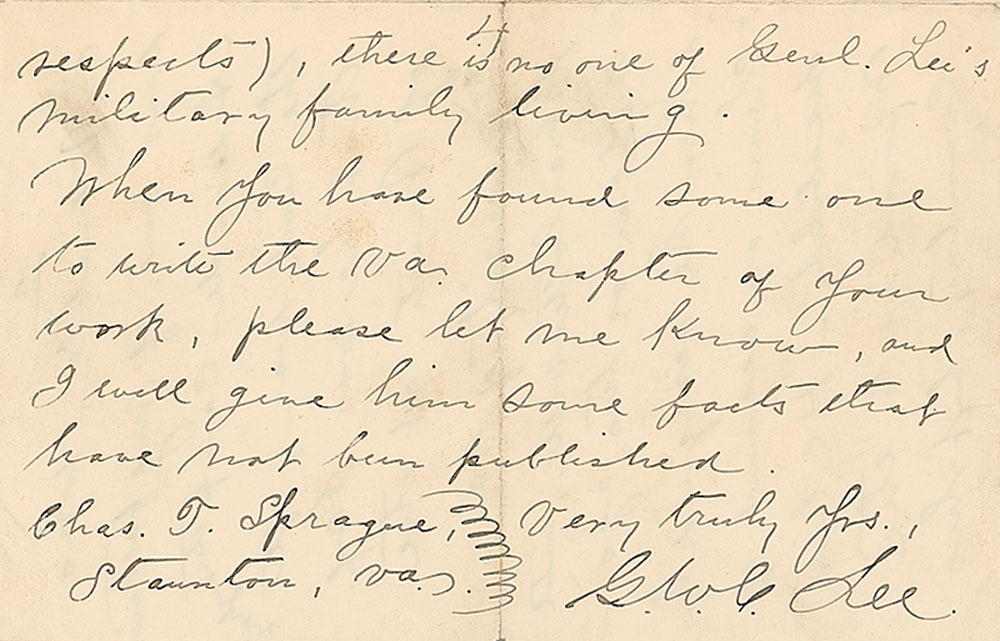 4
respects), there is no one of Genl. Lee's
military family living.
When you have found some one
to write the Va. chapter of your
work, please let me know, and
I will give him some facts that
have not been published.
Chas. T. Sprague, Very truly Yrs.,
Staunton, Va. G. W. C. Lee.